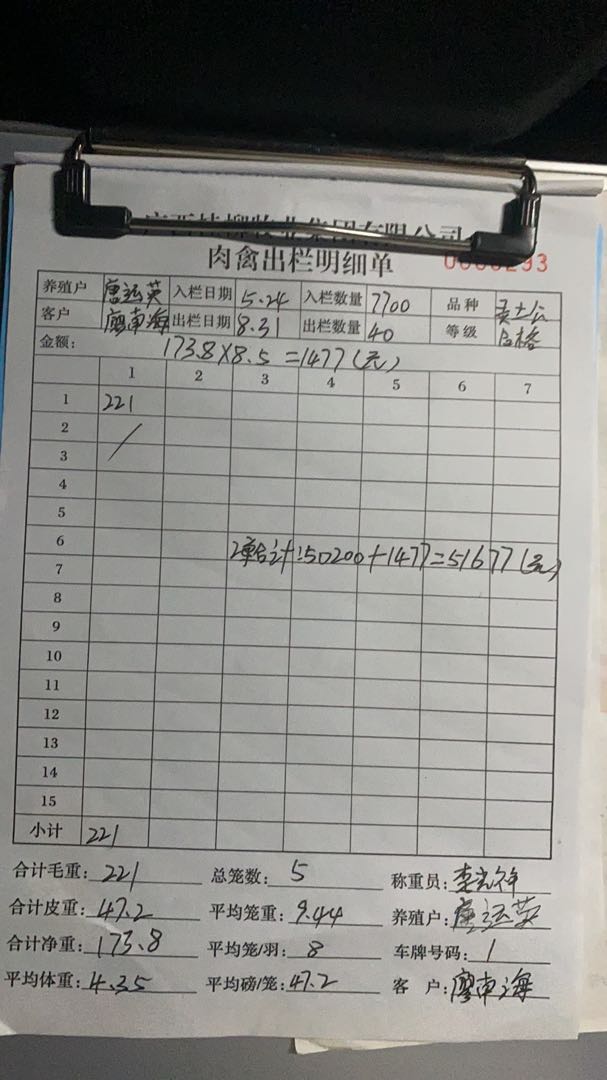 肉禽出栏明细单
养殖户 唐运英 入栏日期 5.24 入栏数量 7700 品种
客户 廖南海 出栏日期 8.31 出栏数量 40 等级 合格
金额: 173.8×8.5=1477(元)
1 2 3 4 5 6 7
1 221
2
3
4
5
6
2单合计:50200+1477=51677(元)
7
8
9
10
11
12
13
14
15
小计 221
合计毛重: 221 总笼数: 5 称重员:
合计皮重: 47.2 平均笼重: 9.44 养殖户: 唐运英
合计净重: 173.8 平均笼/羽: 8 车牌号码: 1
平均体重: 4.35 平均磅/笼: 47.2 客 户: 廖南海